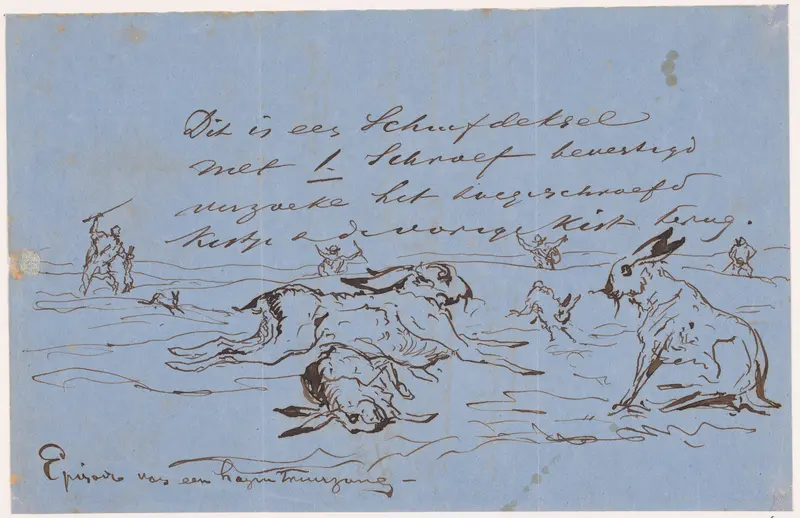 Dit is een Schuifdeksel
met 1. Schroef bevestigd
verzoeke het toegeschroefd
Kistje a d vorige Kist terug.
Episode van een hazen treurzang –